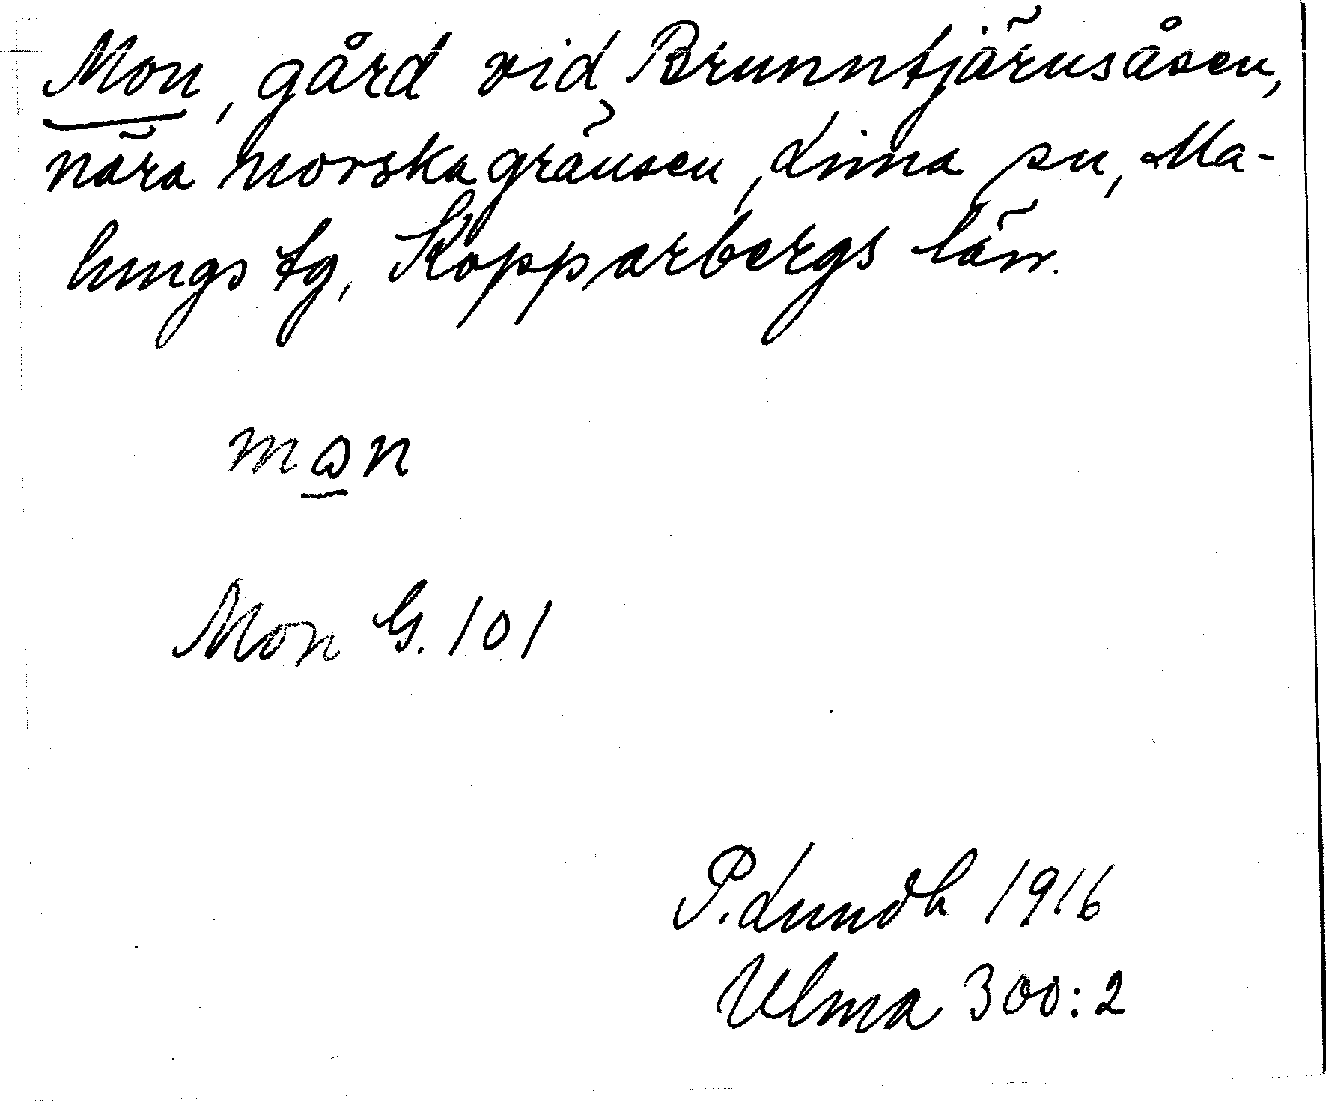 Mon, gård vid Brunntjärnsåsen,
nära norska gränsen, Lima sn, Ma-
lungs tg, Kopparbergs län.
mɷn
Mon G. 101
P. Lundh 1916
Ulma 300:2